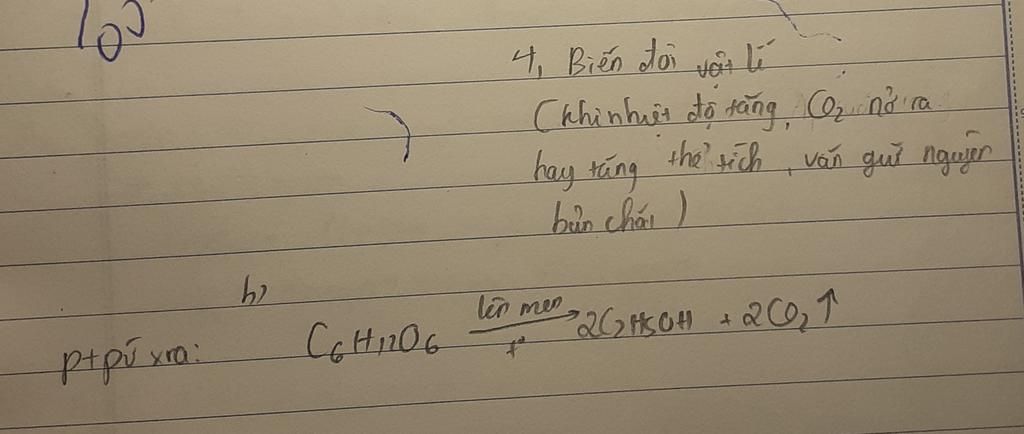 4, Biến đổi vật lí
(khi nhiệt độ tăng, CO2 nở ra
hay tăng thể tích, vẫn giữ nguyên
bản chất)
b,
lên men
ptpứ xra: C6H12O6 → 2C2H5OH + 2CO2↑
t°